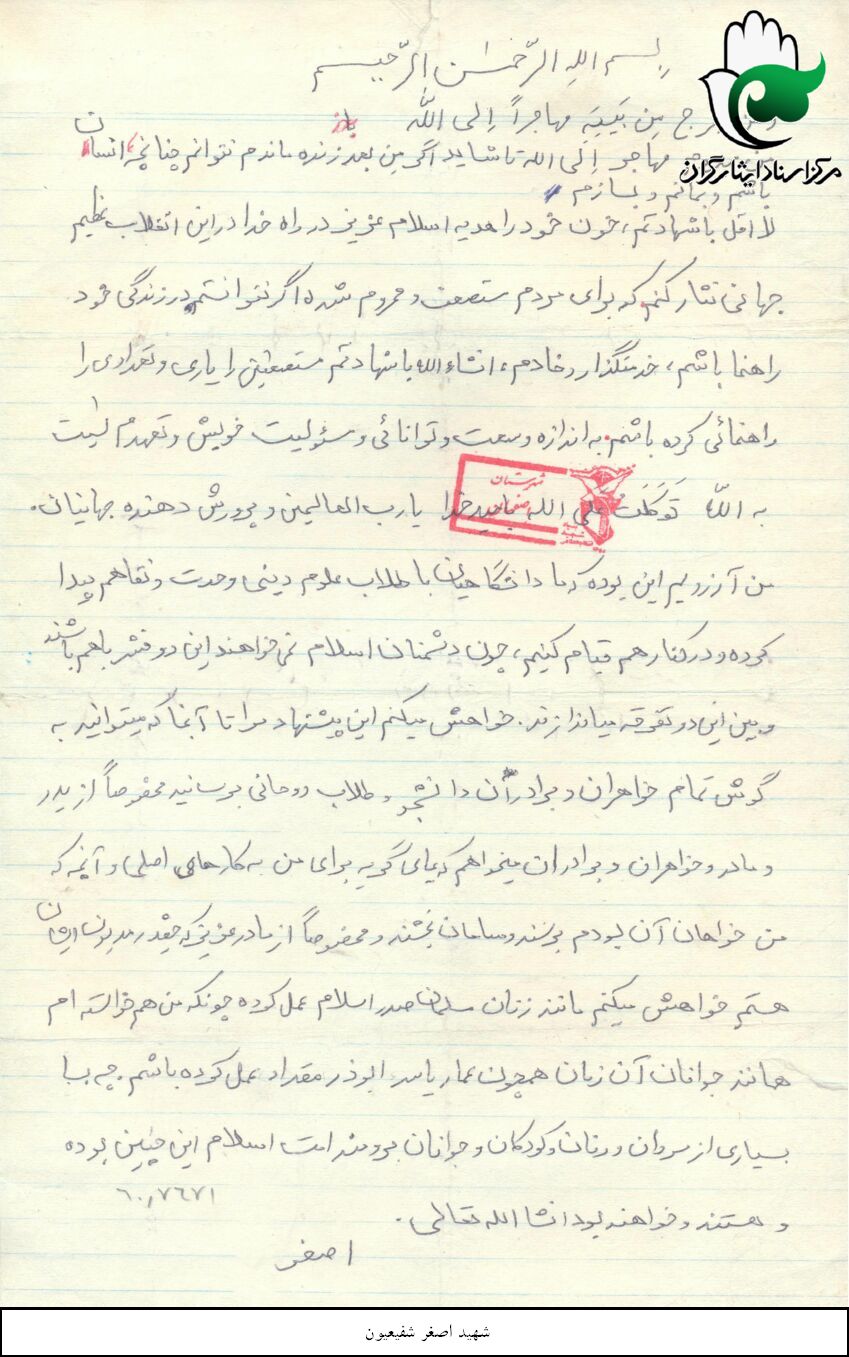 بسم الله الرّحمٰن الرّحیم
مرکز اسناد ایثارگران
مِن بَیتِهِ مهاجراً اِلی اللّه باز
مهاجر اِلَی الله تا شاید اگر من بعد زنده ماندم نتوانم چنانچه انسان
باشم و بمانم و بسازم
لااقل با شهادتم، خون خود را هدیه اسلام عزیز در راه خدا در این انقلاب عظیم
جهانی نثار کنم که برای مردم مستضعف و محروم شده اگر نتوانستم در زندگی خود
راهنما باشم، خدمتگذار و خادم، انشاءالله با شهادتم مستضعفین را یاری و تعدادی را
راهنمائی کرده باشم. به اندازه وسعت و توانائی و مسؤلیت خویش و تعهدم نسبت
به اللّه تَوَکَّلتُ علی الله بامید خدا یا رب العالمین و پرورش دهنده جهانیان.
شهرستان
من آرزویم این بوده که ما دانشگاهیان با طلاب علوم دینی وحدت و تفاهم پیدا
کرده و در کنار هم قیام کنیم، چون دشمنان اسلام نمی‌خواهند این دو قشر باهم باشند
و بین این دو تفرقه میاندازند. خواهش میکنم این پیشنهاد مرا تا آنجا که میتوانید به
گوش تمام خواهران و برادران دانشجو و طلاب روحانی برسانید مخصوصاً از پدر
و مادر و خواهران و برادران میخواهم که بجای گریه برای من به کارهای اصلی و آنچه که
من خواهان آن بودم برسند و سامان بخشند و مخصوصاً از مادر عزیز که چقدر مدیون ایشان
هستم خواهش میکنم مانند زنان مسلمان صدر اسلام عمل کرده چونکه من هم خواسته ام
همانند جوانان آن زمان همچون عمار یاسر ابوذر مقداد عمل کرده باشم. چه بسا
بسیاری از مردان و زنان و کودکان و جوانان برومند امت اسلام این چنین بوده
و هستند و خواهند بود انشا الله تعالی.
اصغر
شهید اصغر شفیعیون